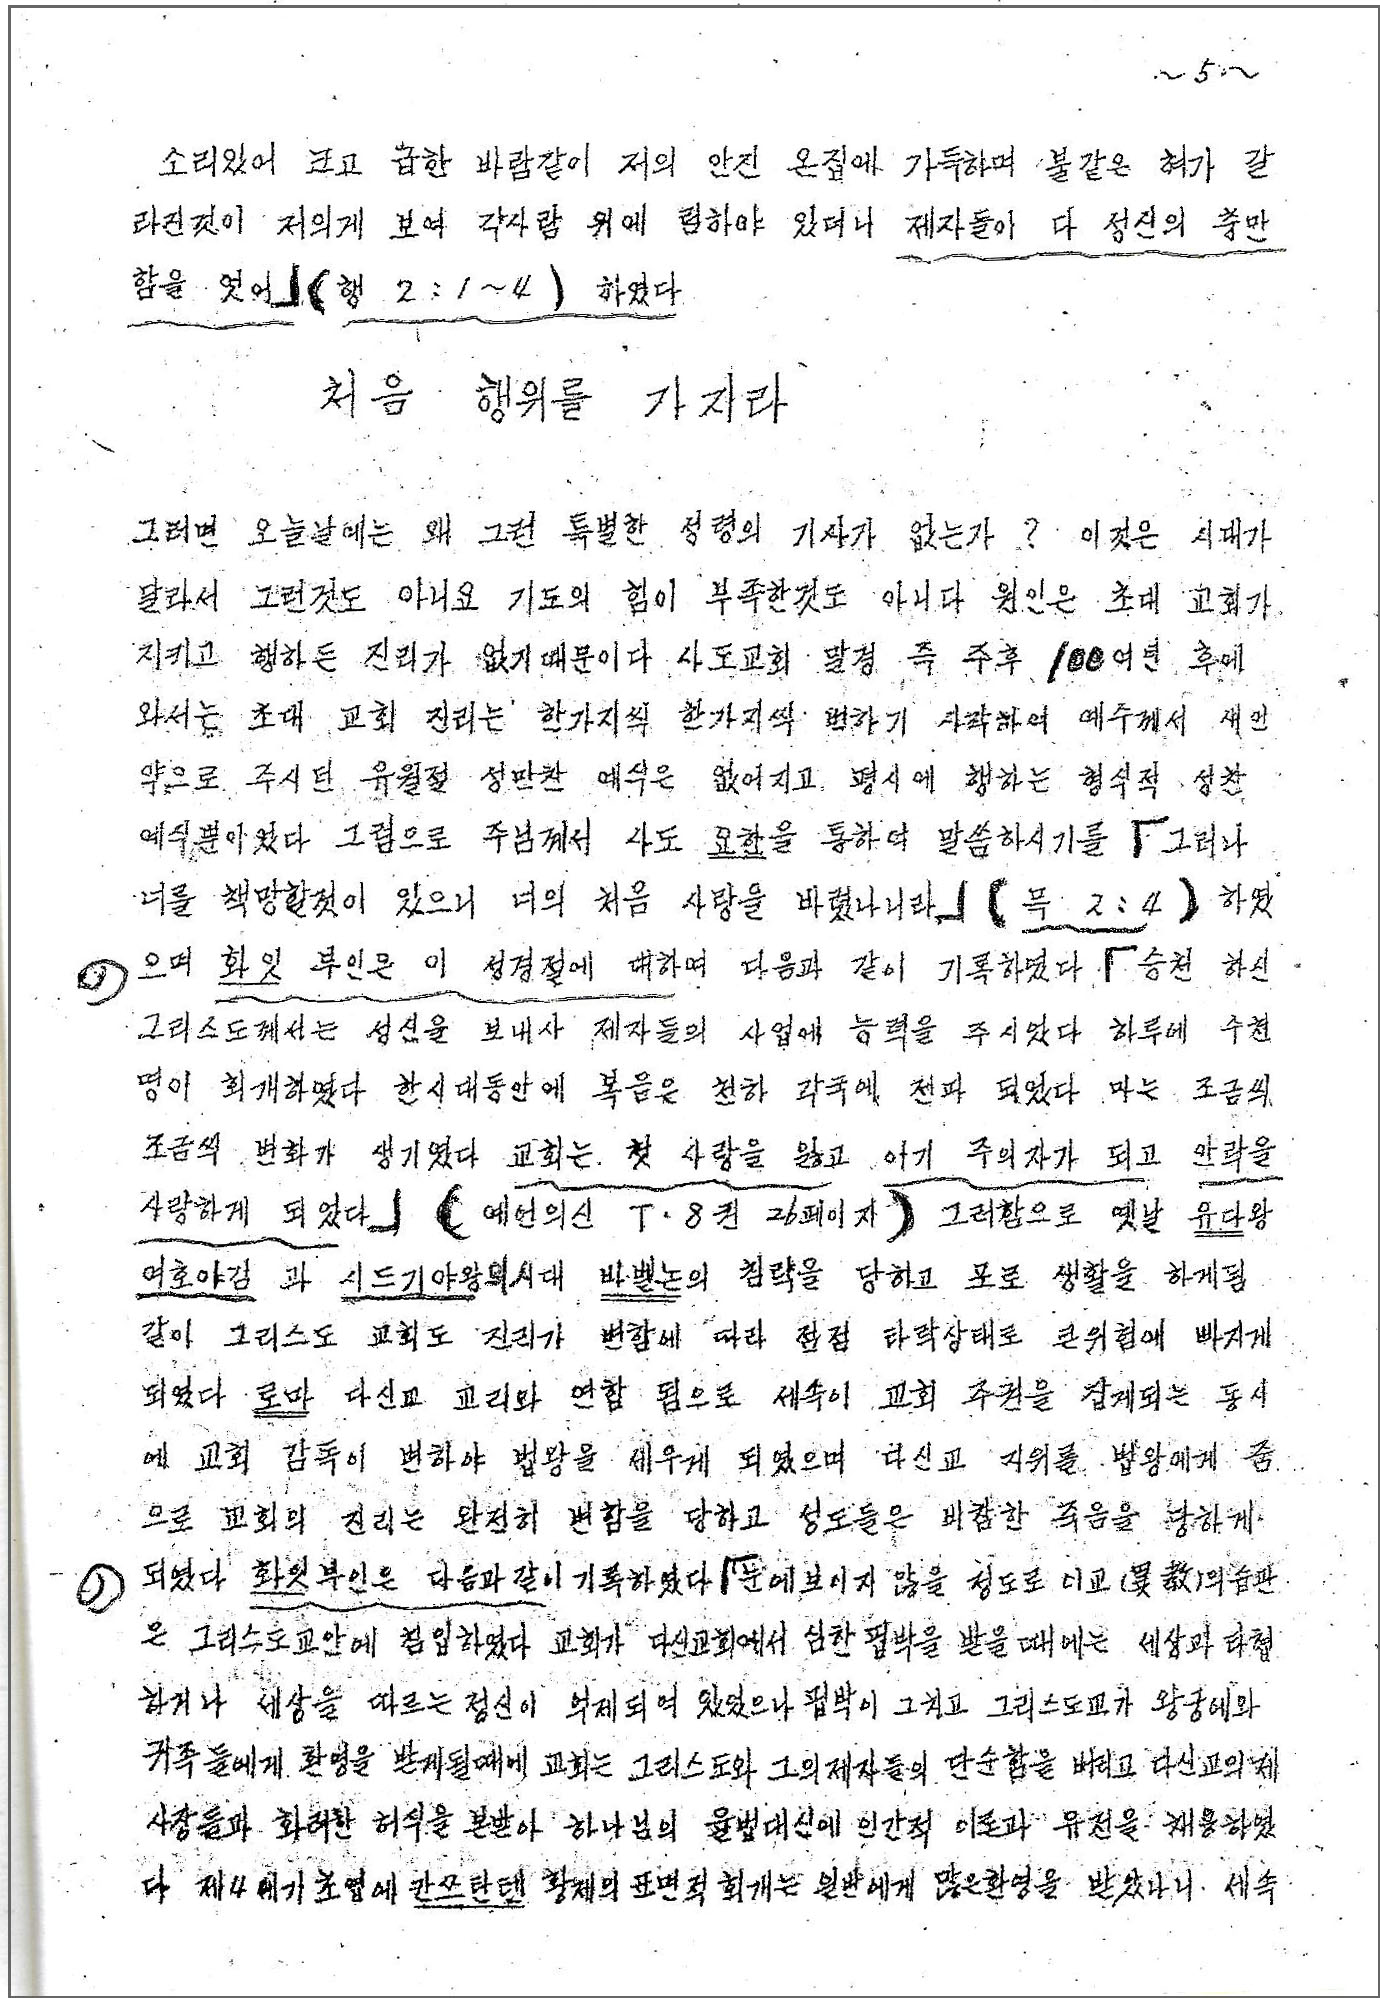 ~5~
소리있어 크고 급한 바람같이 저의 안진 온집에 가득하며 불같은 혀가 갈
라진것이 저의게 보여 각사람 위에 림하야 있더니 제자들이 다 성신의 충만
함을 엇어」(행 2:1~4) 하였다
처음 행위를 가지라
그러면 오늘날에는 왜 그런 특별한 성령의 기사가 없는가? 이것은 시대가
달라서 그런것도 아니요 기도의 힘이 부족한것도 아니다 원인은 초대 교회가
지키고 행하든 진리가 없기때문이다 사도교회 말경 즉 주후 100여년 후에
와서는 초대 교회 진리는 한가지씩 한가지씩 변하기 시작하여 예수께서 새언
약으로 주시던 유월절 성만찬 예식은 없어지고 평시에 행하는 형식적 성찬
예식뿐이었다 그럼으로 주님께서 사도 요한을 통하여 말씀하시기를 「그러나
너를 책망할것이 있으니 너의 처음 사랑을 바렸나니라」(묵 2:4) 하였
으며 화잇 부인은 이 성경절에 대하여 다음과 같이 기록하였다 「승천 하신
그리스도께서는 성신을 보내사 제자들의 사업에 능력을 주시았다 하루에 수천
명이 회개하였다 한시대동안에 복음은 천하 각국에 전파 되었다 마는 조금씩
조금씩 변화가 생기였다 교회는 첫 사랑을 잃고 이기 주의자가 되고 안락을
사랑하게 되었다」 (예언의신 T.8권 26페이지) 그러함으로 옛날 유다왕
여호야김 과 시드기야왕의시대 바벨논의 침략을 당하고 포로 생활을 하게됨
같이 그리스도 교회도 진리가 변함에 따라 점점 타락상태로 큰위험에 빠지게
되었다 로마 다신교 교리와 연합 됨으로 세속이 교회 주권을 잡게되는 동시
에 교회 감독이 변하야 법왕을 세우게 되였으며 다신교 지위를 법왕에게 줌
으로 교회의 진리는 완전히 변함을 당하고 성도들은 비참한 죽음을 당하게
되였다 화잇부인은 다음과같이 기록하였다 「눈에보이지 않을 정도로 이교(異敎)의습관
은 그리스도교안에 침입하였다 교회가 다신교회에서 심한 핍박을 받을때에는 세상과 타협
하거나 세상을 따르는 정신이 억제되여 있었으나 핍박이 그치고 그리스도교가 왕궁에와
귀족들에게 환영을 받게될때에 교회는 그리스도와 그의제자들의 단순함을 버리고 다신교의제
사장들과 화려한 허식을 본받아 하나님의 율법대신에 인간적 이론과 유전을 채용하였
다 제4세기초엽에 칸쓰탄텐 황제의 표면적 회개는 일반에게 많은환영을 받았나니 세속